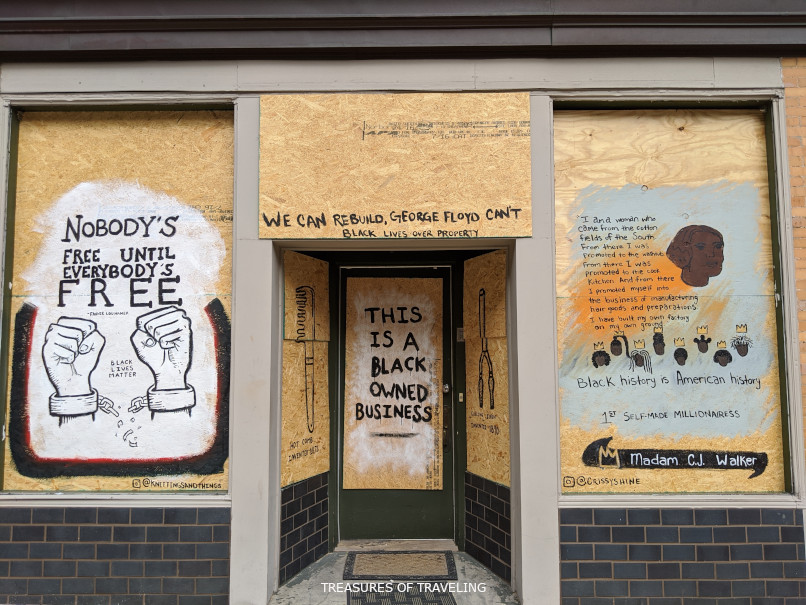 NOBODY'S
FREE UNTIL
EVERYBODY'S
FREE
BLACK
LIVES
MATTER
@KNITTINGSANDTHINGS
WE CAN REBUILD, GEORGE FLOYD CAN'T
BLACK LIVES OVER PROPERTY
HOT COMB
THIS
IS A
BLACK
OWNED
BUSINESS
"I am a woman who
came from the cotton
fields of the South.
From there I was
promoted to the washtub.
From there I was
promoted to the cook
kitchen. And from there
I promoted myself into
the business of manufacturing
hair goods and preparations
I have built my own factory
on my own ground"
Black history is American history
1ST SELF-MADE MILLIONAIRESS
Madam C.J. Walker
@CRISSYSHINE
TREASURES OF TRAVELING